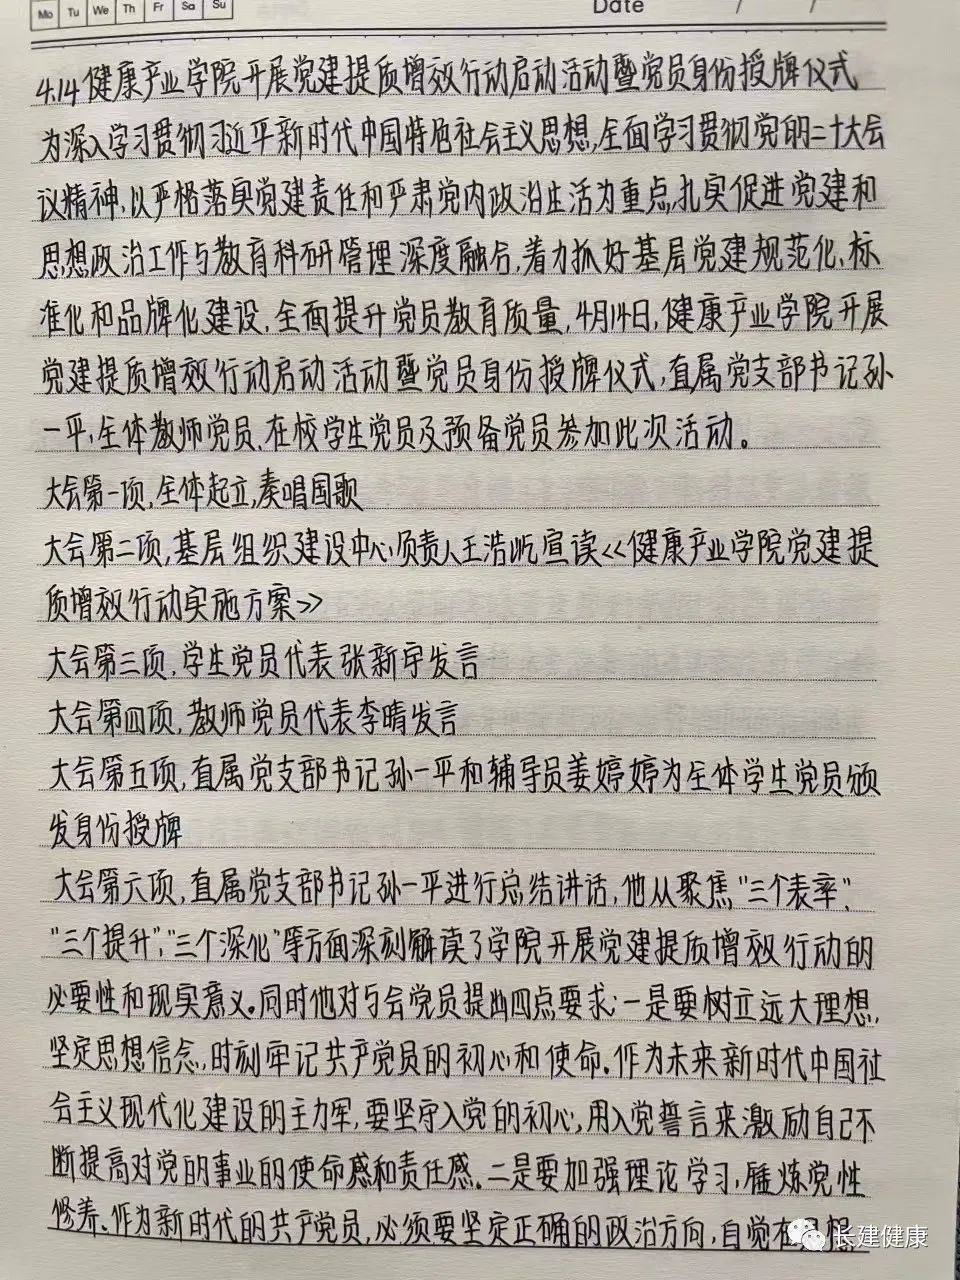 Mo Tu We Th Fr Sa Su
Date / /
4.14健康产业学院开展党建提质增效行动启动活动暨党员身份授牌仪式
为深入学习贯彻习近平新时代中国特色社会主义思想,全面学习贯彻党的二十大会
议精神,以严格落实党建责任和严肃党内政治生活为重点,扎实促进党建和
思想政治工作与教育科研管理深度融合,着力抓好基层党建规范化,标
准化和品牌化建设,全面提升党员教育质量,4月14日,健康产业学院开展
党建提质增效行动启动活动暨党员身份授牌仪式,直属党支部书记孙
一平,全体教师党员,在校学生党员及预备党员参加此次活动。
大会第一项,全体起立,奏唱国歌
大会第二项,基层组织建设中心负责人王浩屹宣读<<健康产业学院党建提
质增效行动实施方案>>
大会第三项,学生党员代表张新宇发言
大会第四项,教师党员代表李晴发言
大会第五项,直属党支部书记孙一平和辅导员姜婷婷为全体学生党员颁
发身份授牌
大会第六项,直属党支部书记孙一平进行总结讲话,他从聚焦"三个表率",
"三个提升","三个深化"等方面深刻解读了学院开展党建提质增效行动的
必要性和现实意义。同时他对与会党员提出四点要求:一是要树立远大理想,
坚定思想信念,时刻牢记共产党员的初心和使命。作为未来新时代中国社
会主义现代化建设的主力军,要坚守入党的初心,用入党誓言来激励自己不
断提高对党的事业的使命感和责任感。二是要加强理论学习,锤炼党性
修养。作为新时代的共产党员,必须要坚定正确的政治方向,自觉在思想
长建健康